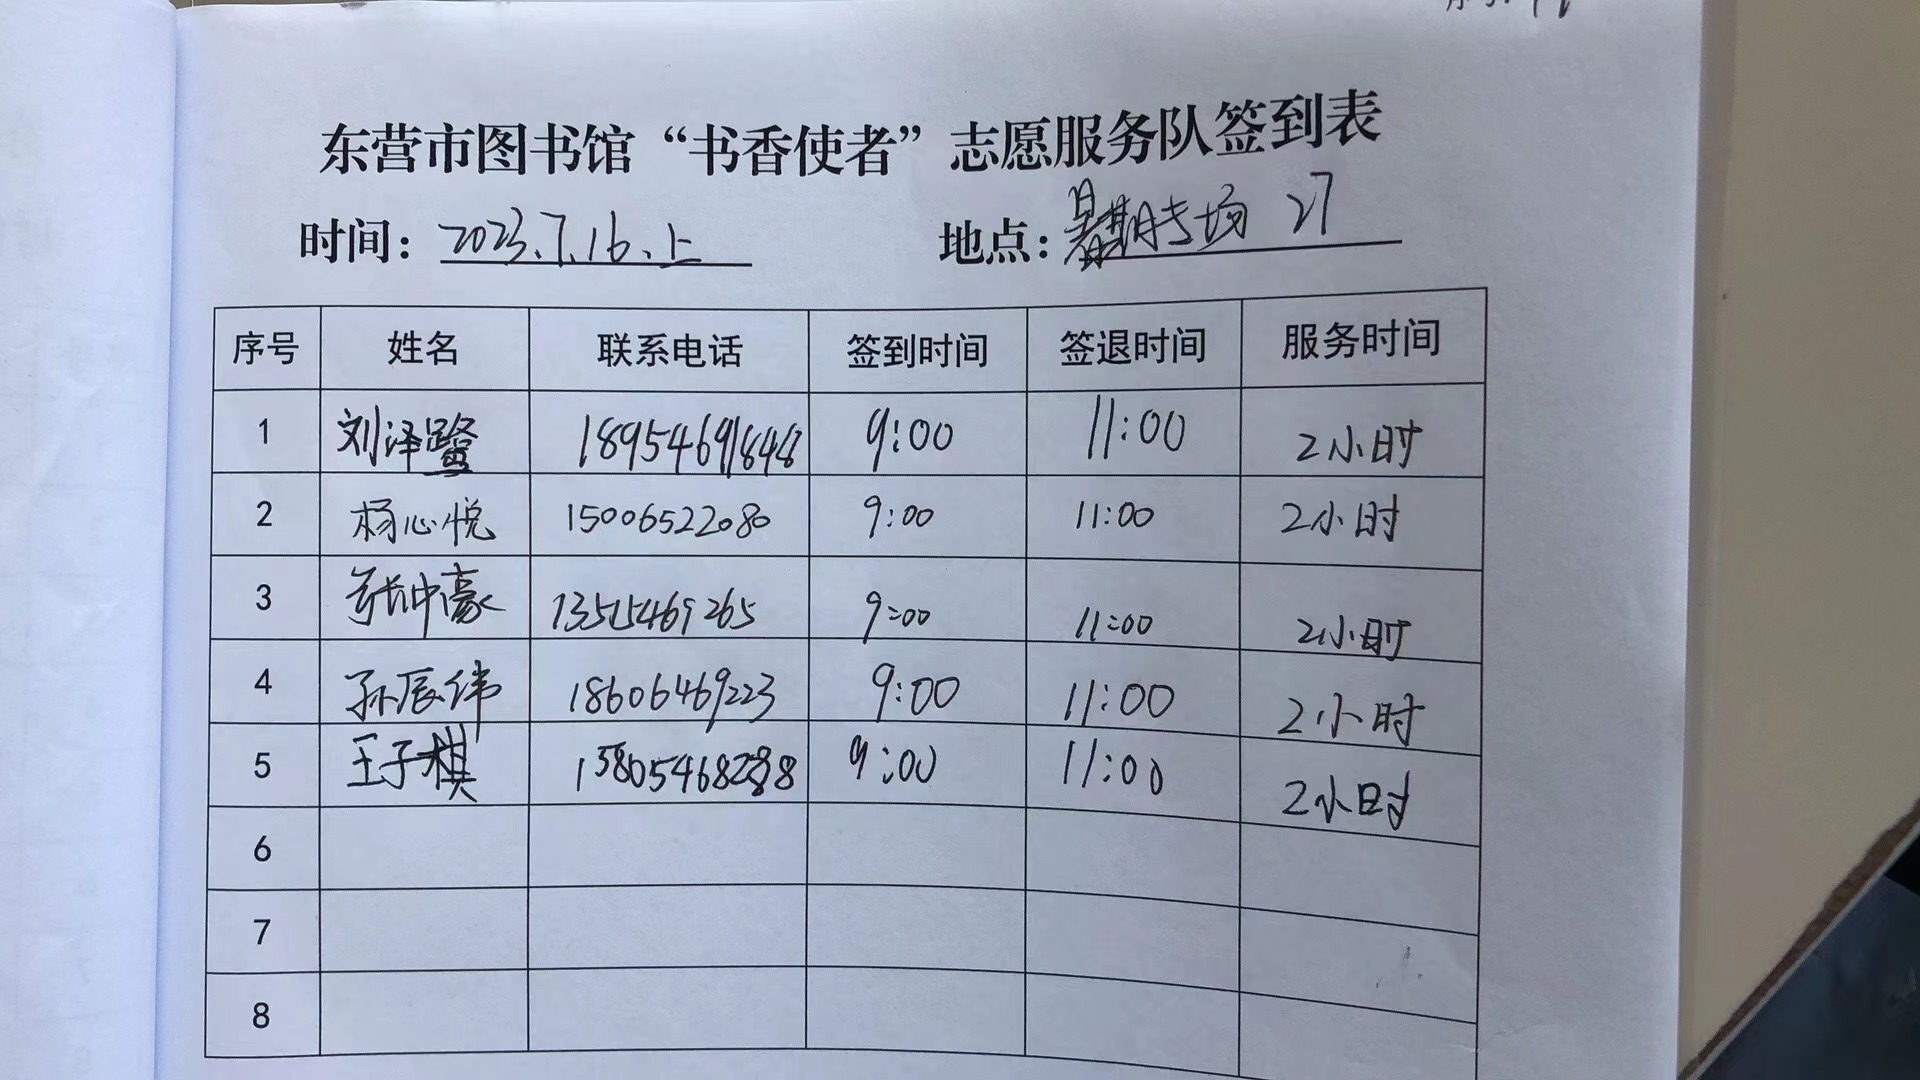 东营市图书馆“书香使者”志愿服务队签到表
时间：2023.7.16.上 地点：暑期专场 27
序号 姓名 联系电话 签到时间 签退时间 服务时间
1 刘泽鹭 18954691848 9:00 11:00 2小时
2 杨心悦 15006522080 9:00 11:00 2小时
3 张中豪 13515469265 9:00 11:00 2小时
4 孙辰纬 18606469223 9:00 11:00 2小时
5 王子棋 13805468288 9:00 11:00 2小时
6
7
8